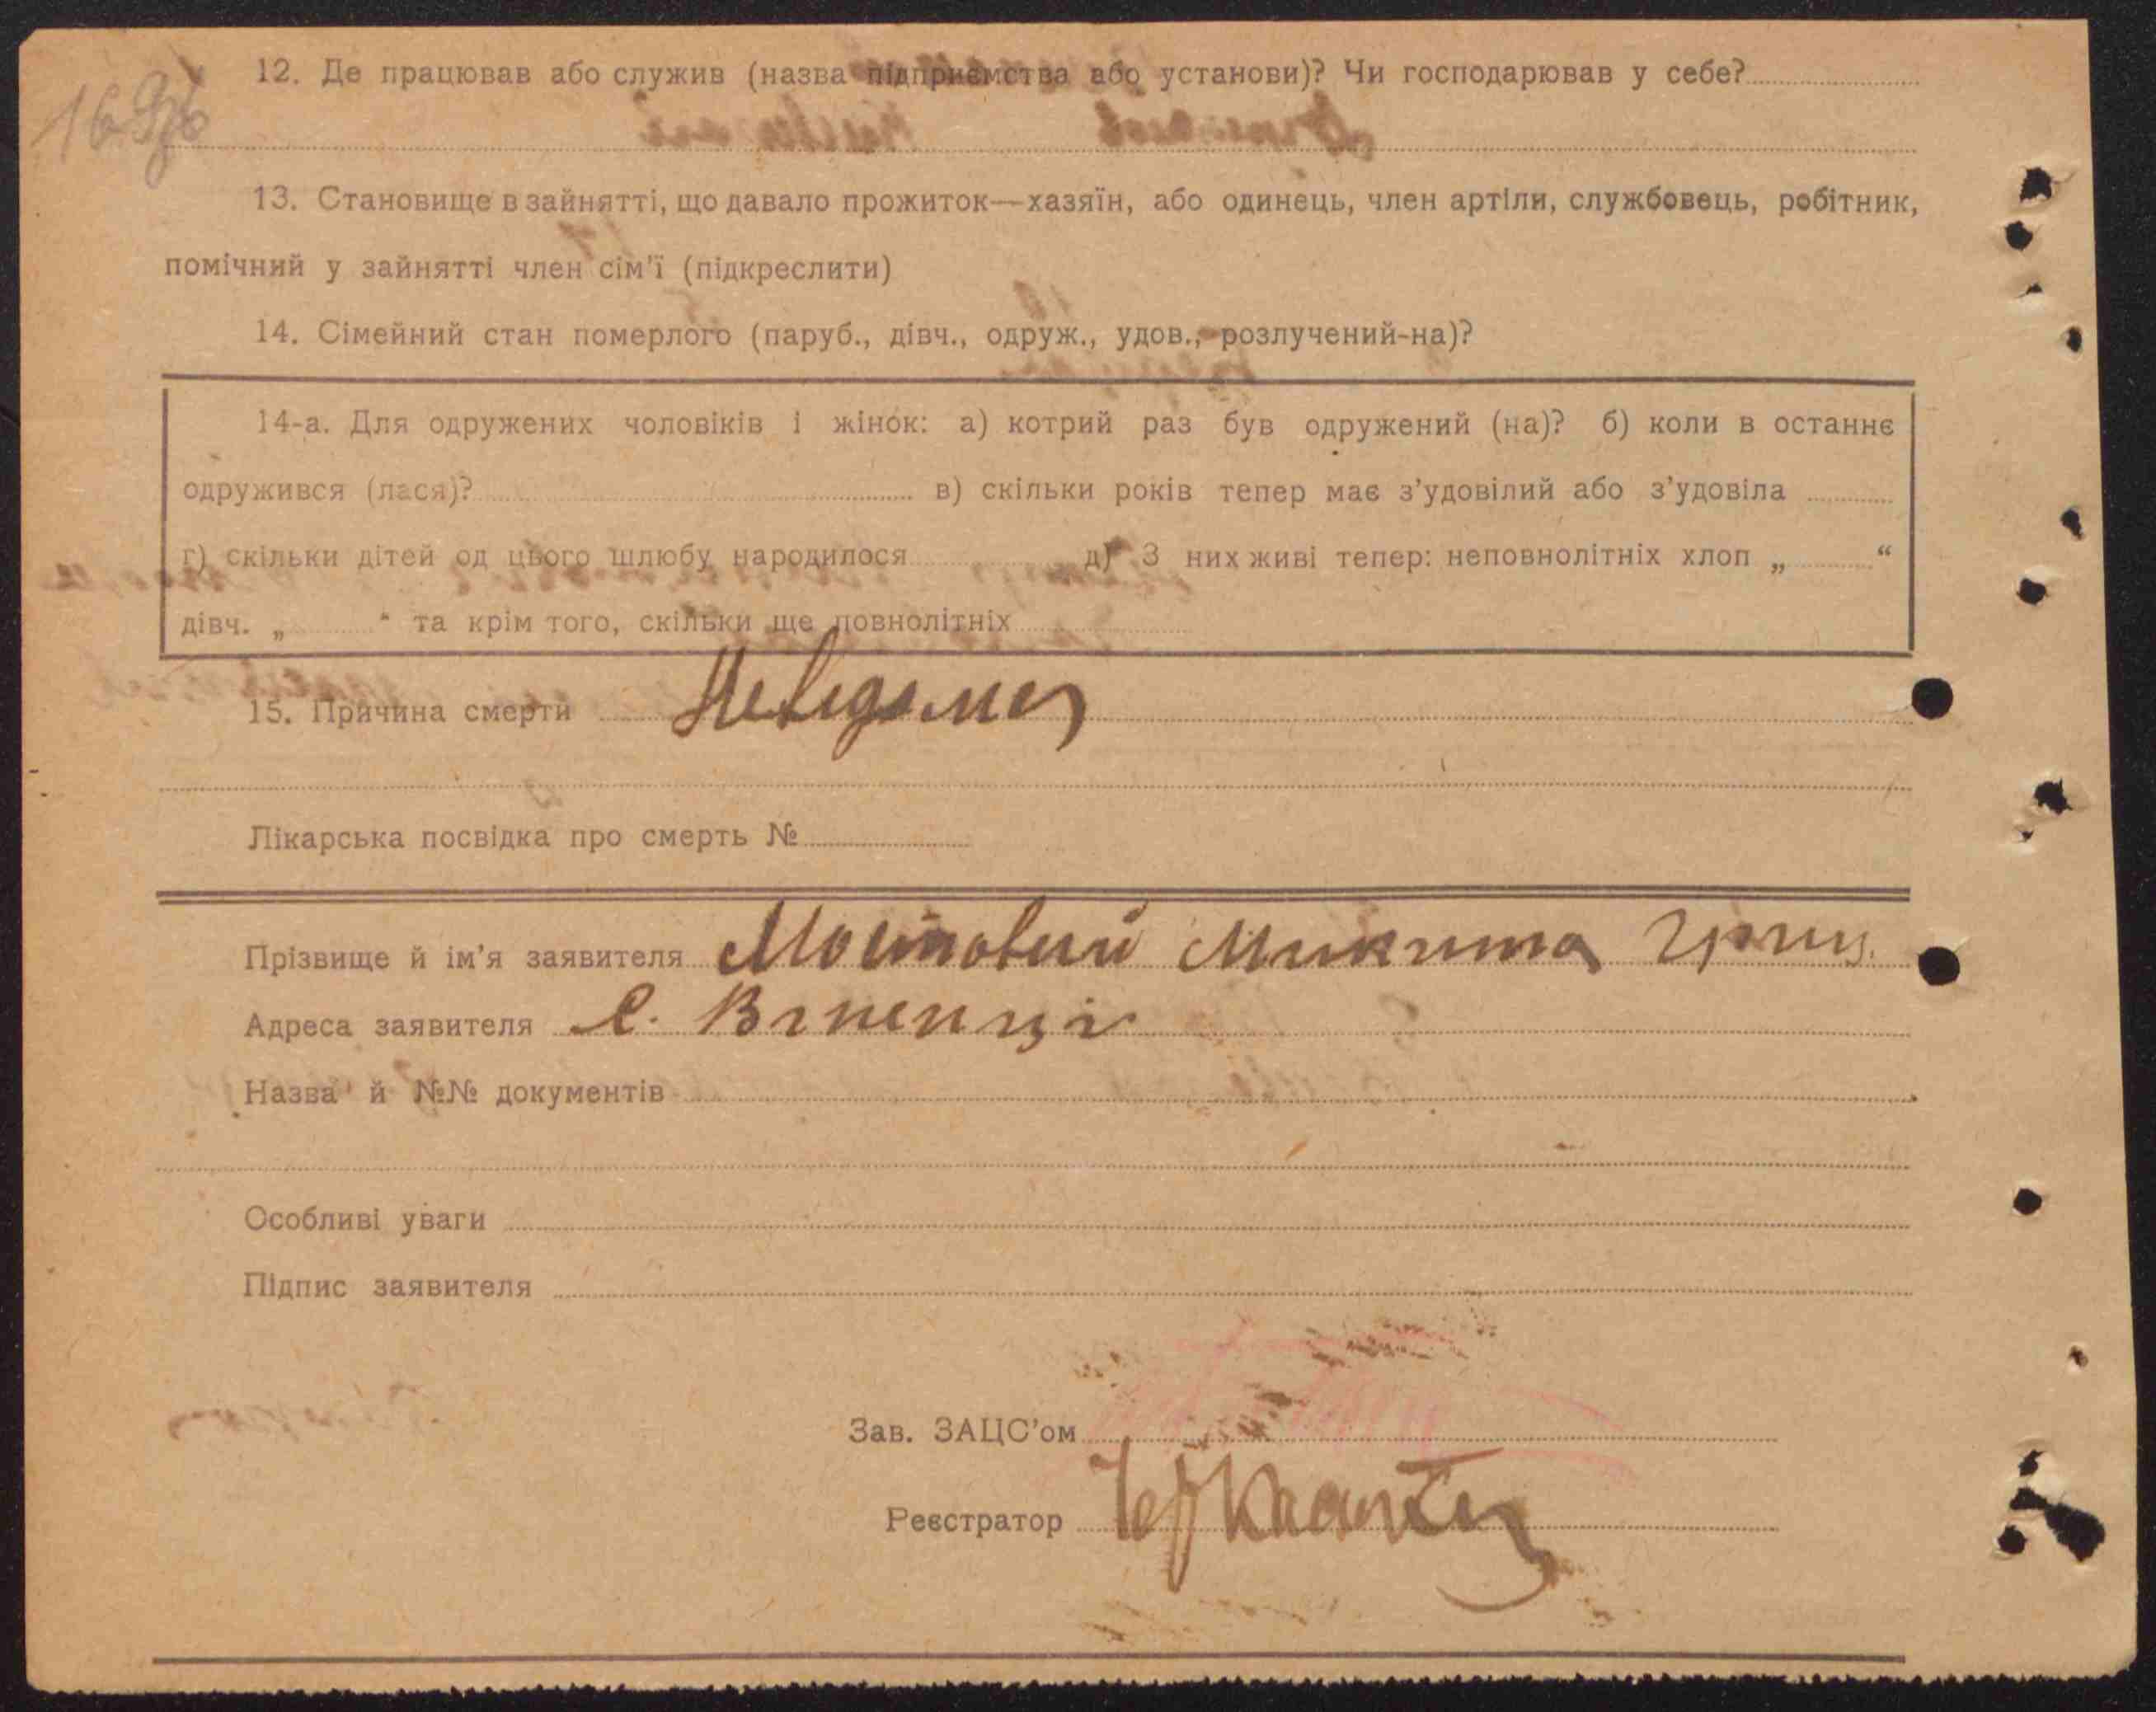 12. Де працював або служив (назва підприємства або установи)? Чи господарював у себе?
13. Становище в зайнятті, що давало прожиток—хазяїн, або одинець, член артіли, службовець, робітник,
помічний у зайнятті член сім'ї (підкреслити)
14. Сімейний стан померлого (паруб., дівч., одруж., удов., розлучений-на)?
14-а. Для одружених чоловіків і жінок: а) котрий раз був одружений (на)? б) коли в останнє
одружився (лася)? в) скільки років тепер має з'удовілий або з'удовіла
г) скільки дітей од цього шлюбу народилося д) З них живі тепер: неповнолітніх хлоп „ “
дівч. „ “ та крім того, скільки ще повнолітніх
15. Причина смерти Невідома
Лікарська посвідка про смерть №
Прізвище й ім'я заявителя Мостовий Микита Гриц.
Адреса заявителя с. Віпенці
Назва й №№ документів
Особливі уваги
Підпис заявителя
Зав. ЗАЦС'ом
Реєстратор